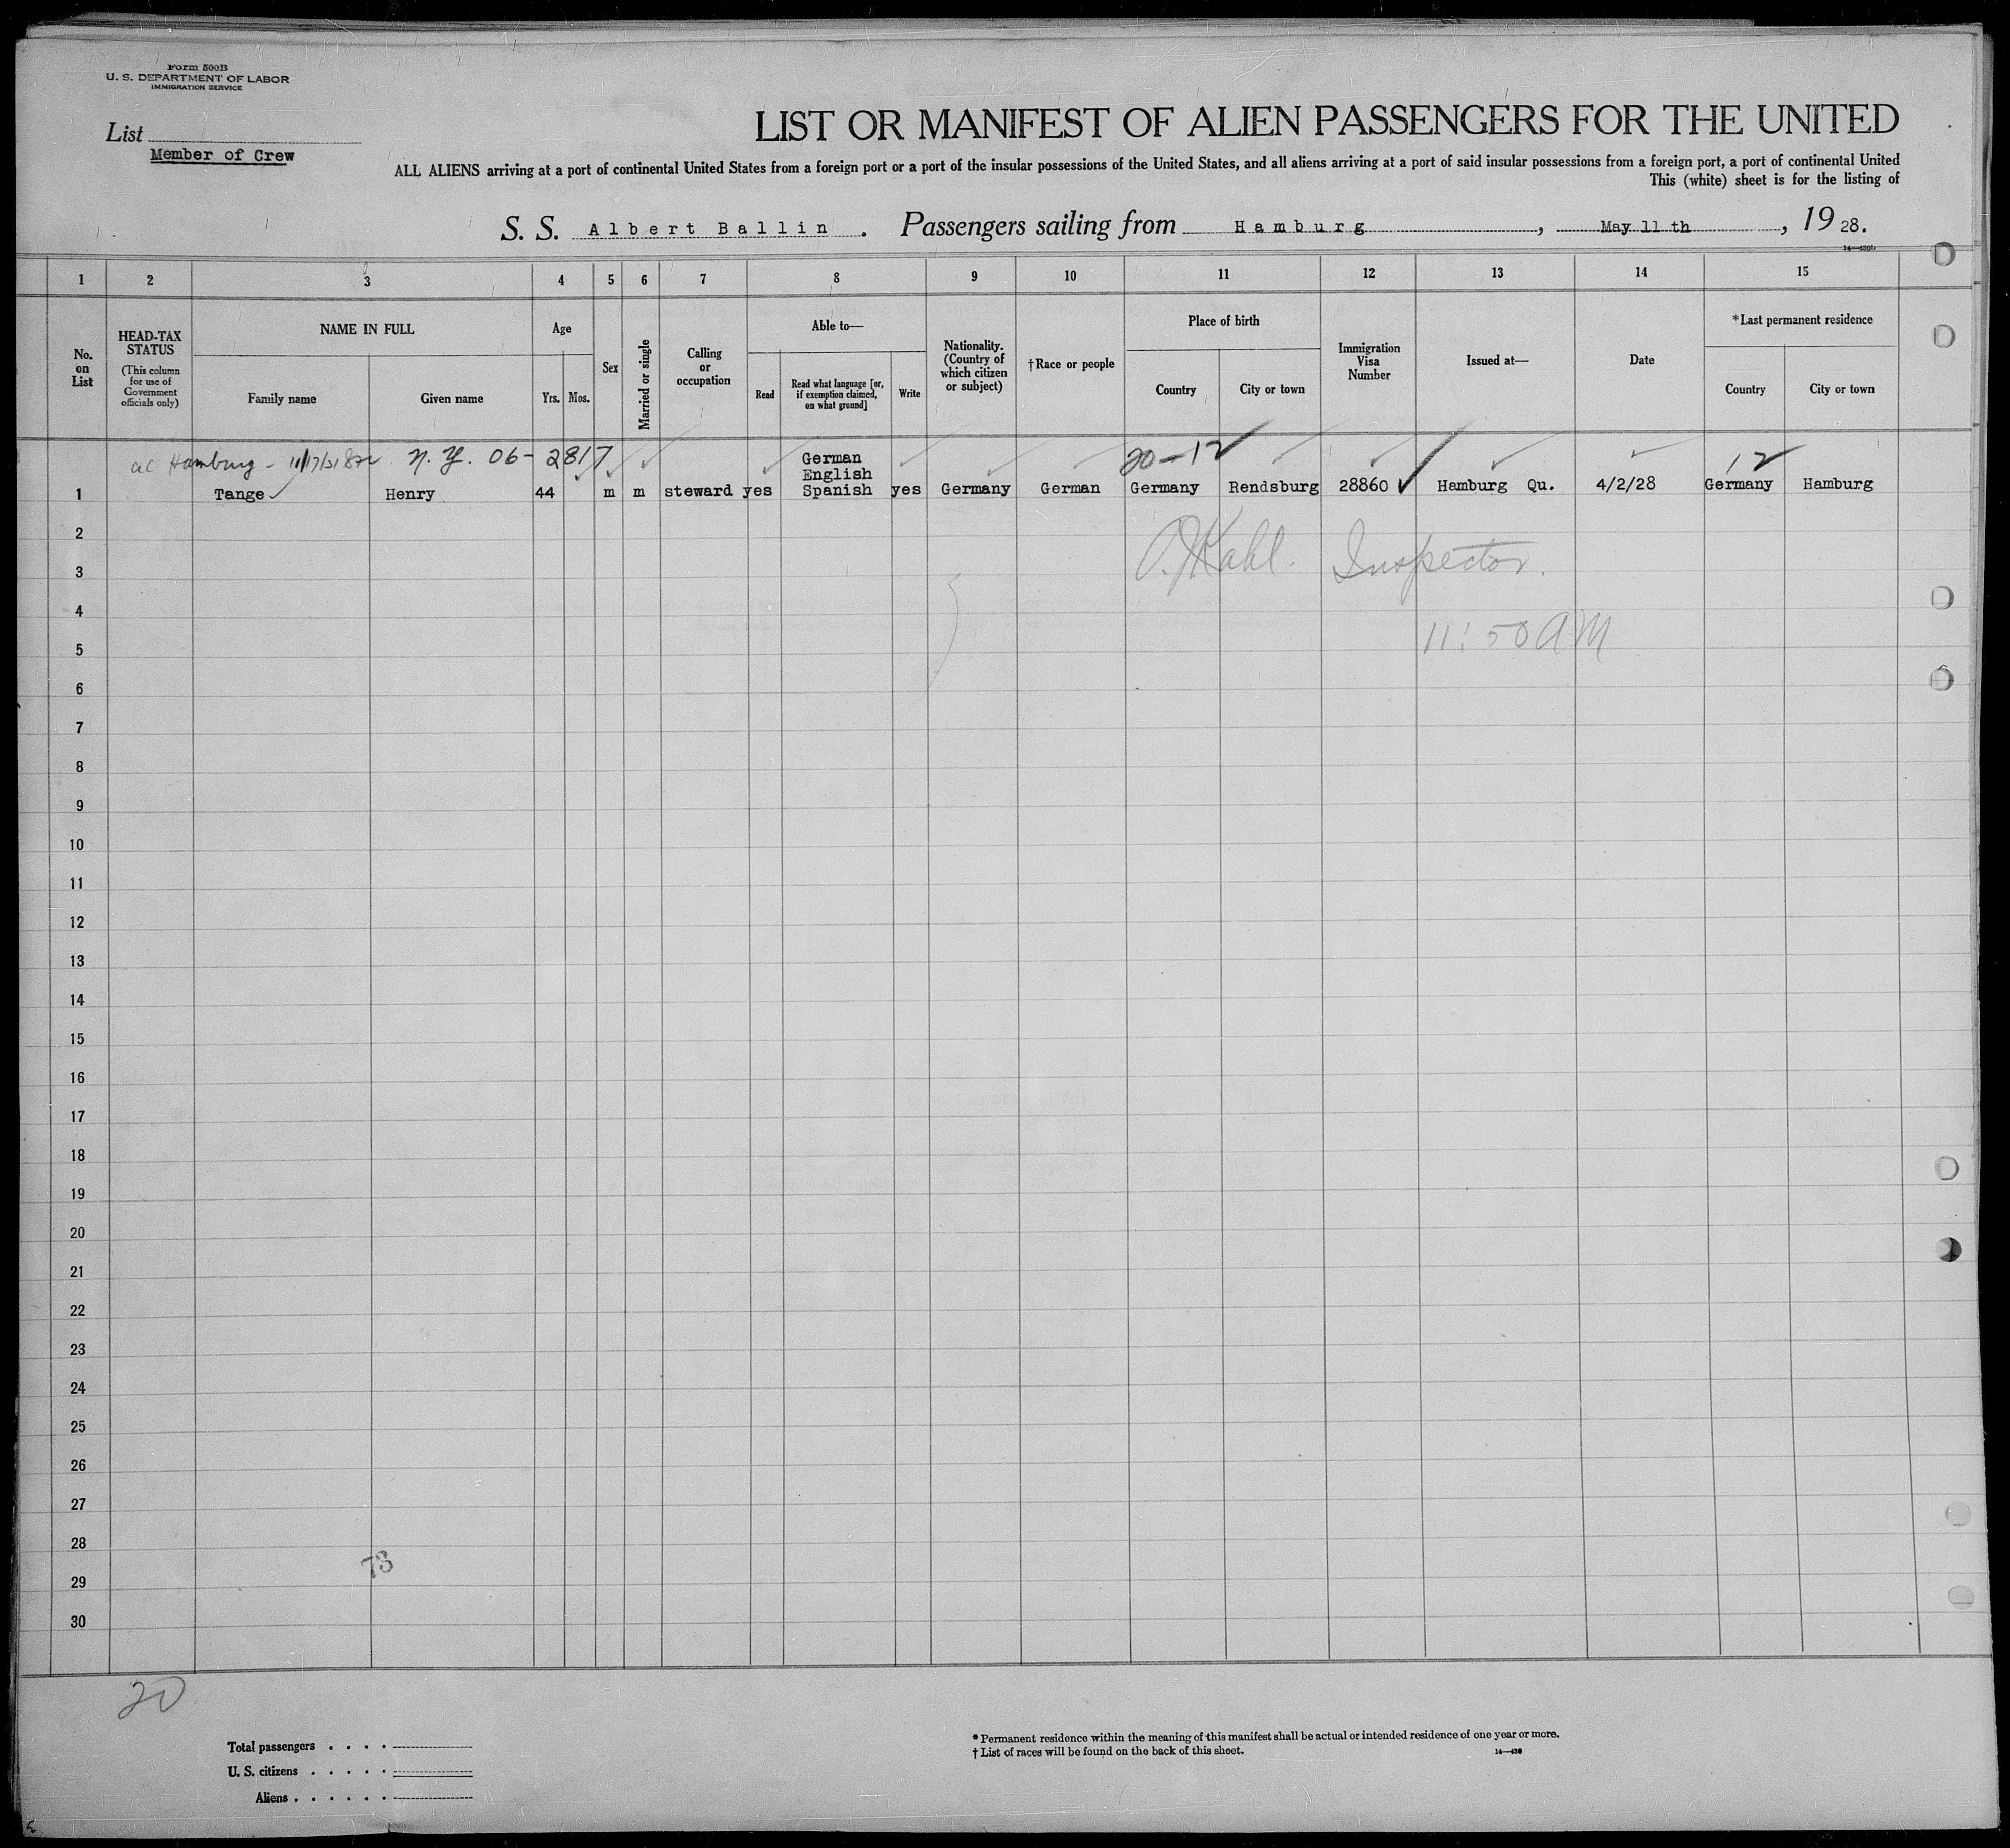 Form 500B
U. S. DEPARTMENT OF LABOR
IMMIGRATION SERVICE
List
Member of Crew
LIST OR MANIFEST OF ALIEN PASSENGERS FOR THE UNITED
ALL ALIENS arriving at a port of continental United States from a foreign port or a port of the insular possessions of the United States, and all aliens arriving at a port of said insular possessions from a foreign port, a port of continental United
This (white) sheet is for the listing of
S. S. Albert Ballin . Passengers sailing from Hamburg , May 11 th , 19 28.
14—430b
1 2 3 4 5 6 7 8 9 10 11 12 13 14 15
No. on List
HEAD-TAX STATUS
(This column for use of Government officials only)
NAME IN FULL
Family name
Given name
Age
Yrs.
Mos.
Sex
Married or single
Calling or occupation
Able to—
Read
Read what language [or, if exemption claimed, on what ground]
Write
Nationality. (Country of which citizen or subject)
†Race or people
Place of birth
Country
City or town
Immigration Visa Number
Issued at—
Date
*Last permanent residence
Country
City or town
Hamburg - N. Y. 06-2817 German 20-12 12
English
1 Tange Henry 44 m m steward yes Spanish yes Germany German Germany Rendsburg 28860 Hamburg Qu. 4/2/28 Germany Hamburg
2
Inspector.
3
4
11:50 AM
5
6
7
8
9
10
11
12
13
14
15
16
17
18
19
20
21
22
23
24
25
26
27
28
73
29
30
20
Total passengers . . . .
U. S. citizens . . . . .
Aliens . . . . . .
* Permanent residence within the meaning of this manifest shall be actual or intended residence of one year or more.
† List of races will be found on the back of this sheet.
14—430